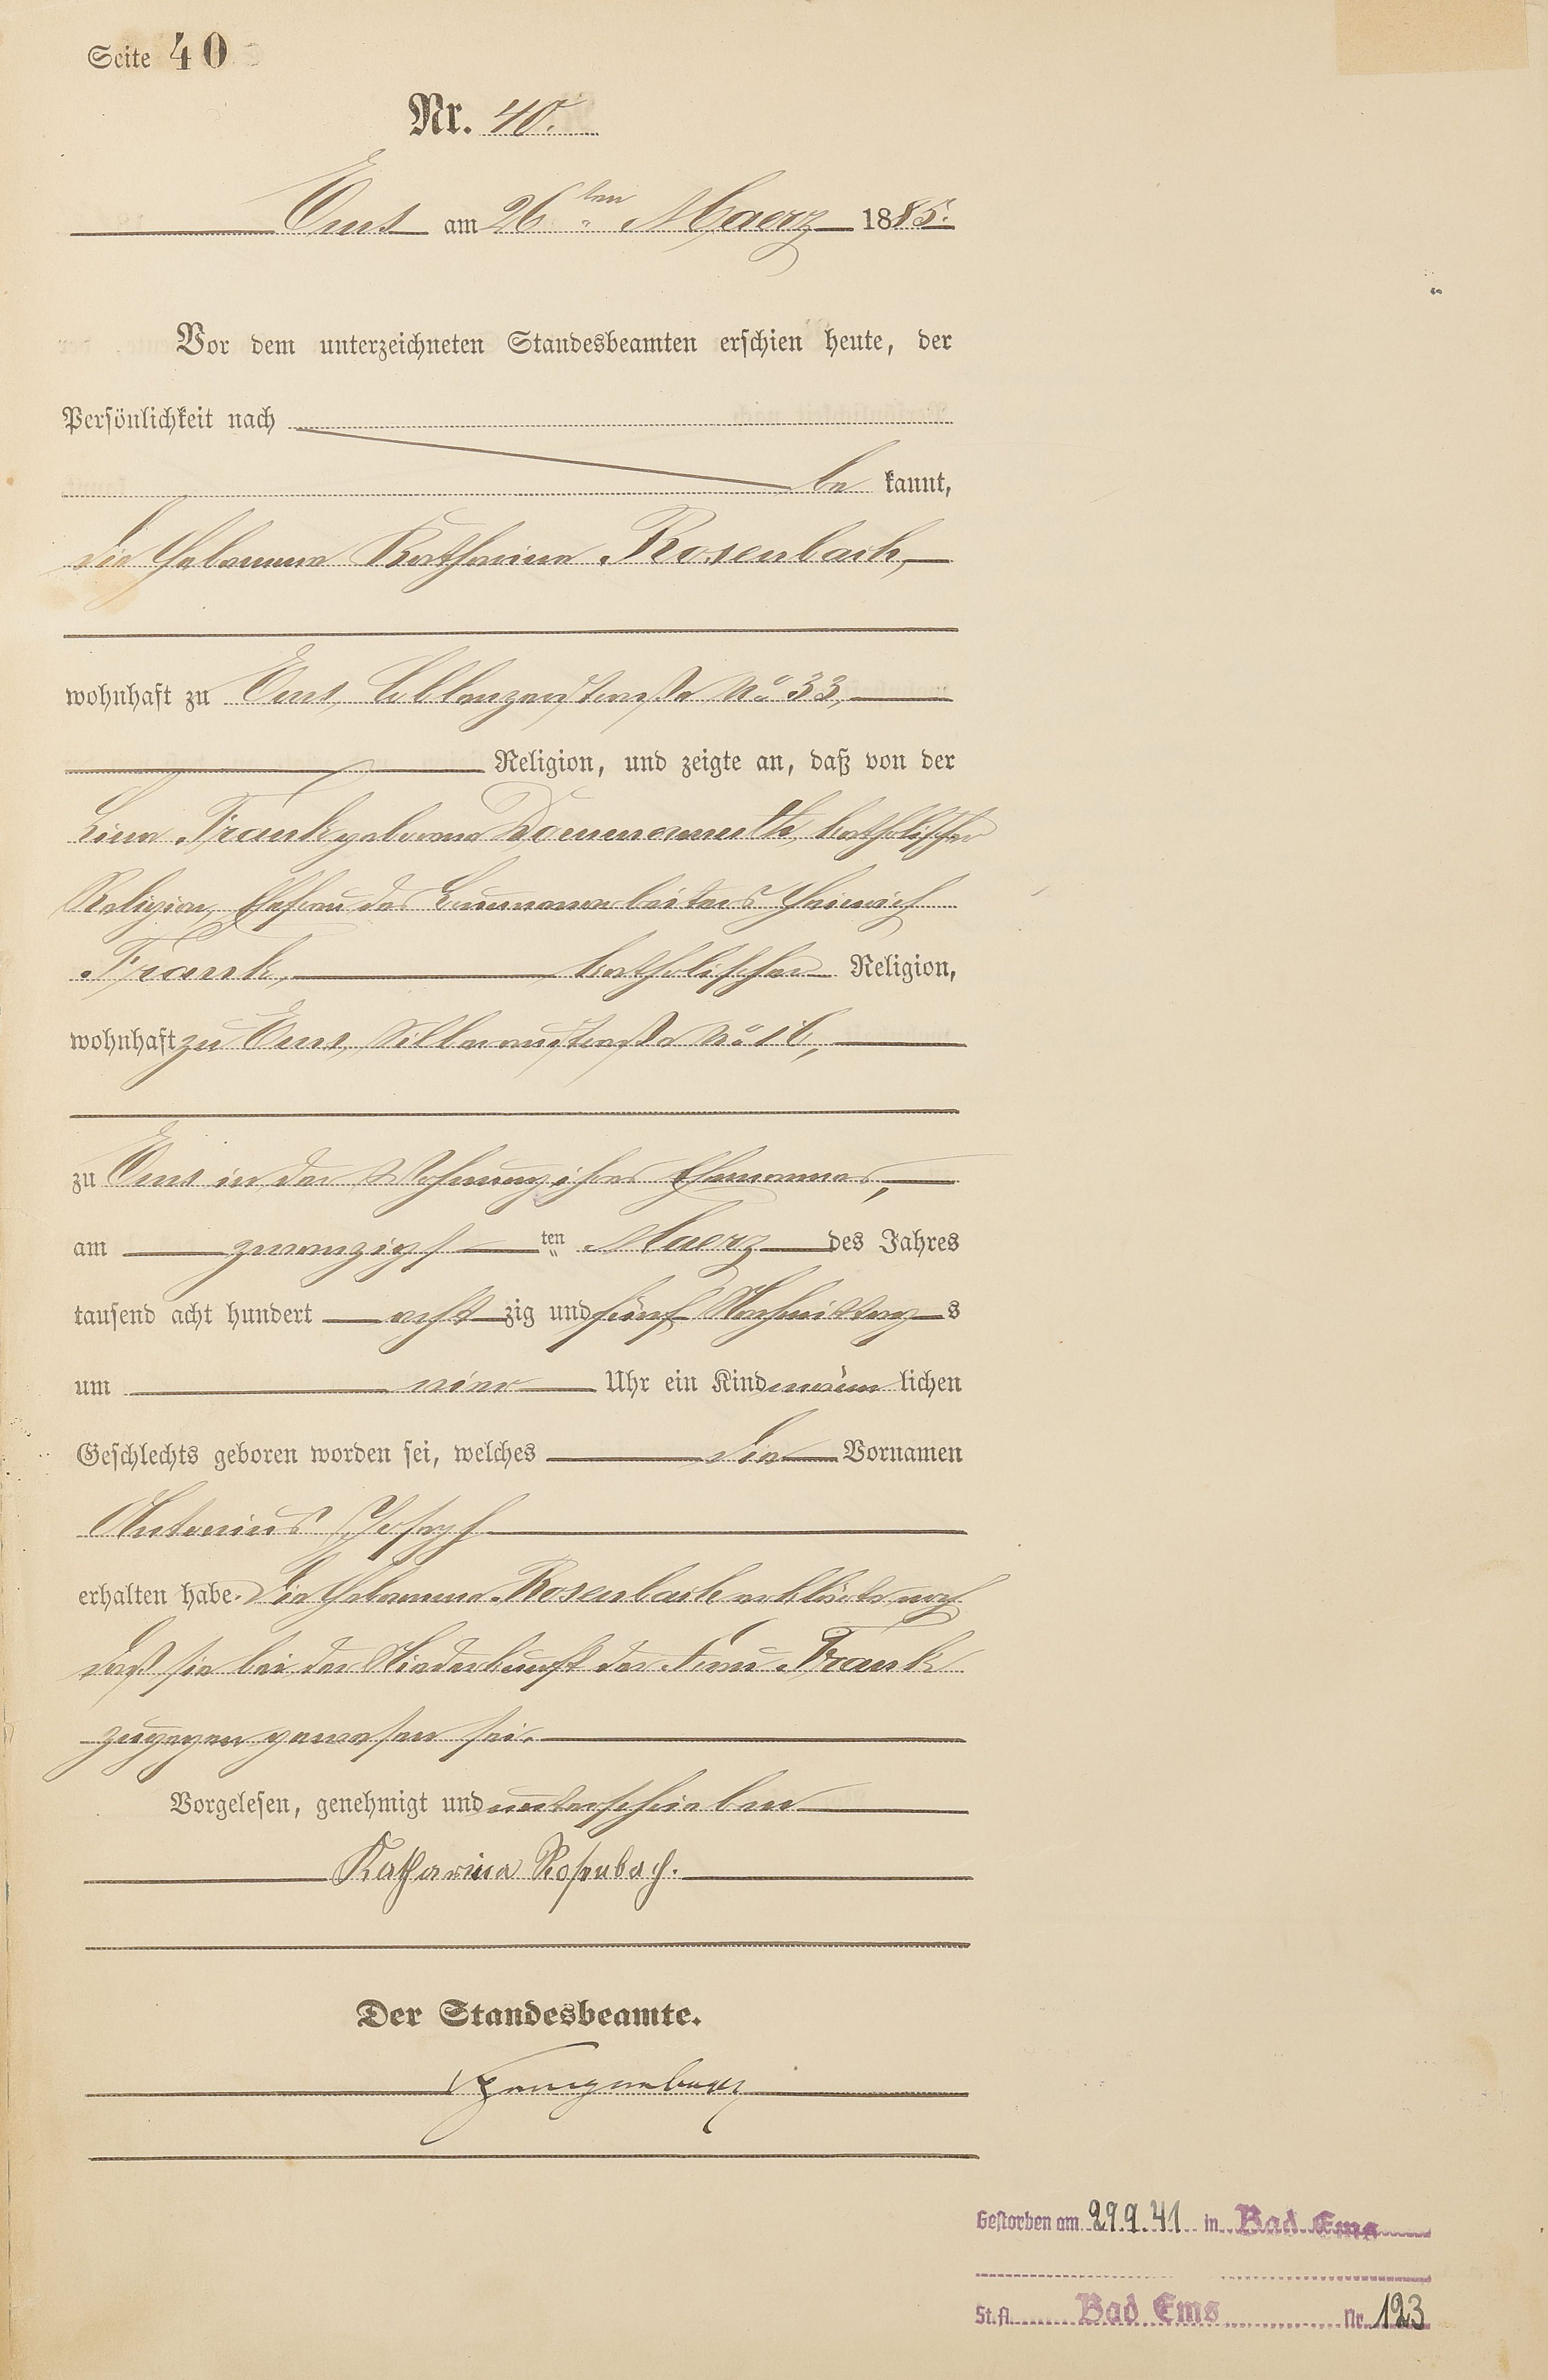 Seite 40
Nr. 40.
Ems am 26ten Maerz 1885.
Vor dem unterzeichneten Standesbeamten erschien heute, der
Persönlichkeit nach
be kannt,
die Hebamme Katharina Rosenbach,
wohnhaft zu Ems, Coblenzerstraße No 33,
Religion, und zeigte an, daß von der
Lina Frank geborene katholischer
Religion, Ehefrau des Heinrich
Frank, katholischer Religion,
wohnhaft zu Ems, Silberaustraße No 16,
zu Ems in der Wohnung ihres Ehemannes,
am zwanzigsten Maerz des Jahres
tausend acht hundert acht zig und fünf Nachmittags
um Uhr ein Kind männ lichen
Geschlechts geboren worden sei, welches die Vornamen
Antonius Joseph
erhalten habe. Die Hebamme Rosenbach erklärte noch
daß sie bei der Niederkunft der Frau Frank
zugegen gewesen sei.
Vorgelesen, genehmigt und unterschrieben
Katharina Rosenbach.
Der Standesbeamte.
Gestorben am 29.9.41 in Bad Ems
St. A. Bad Ems Nr. 123